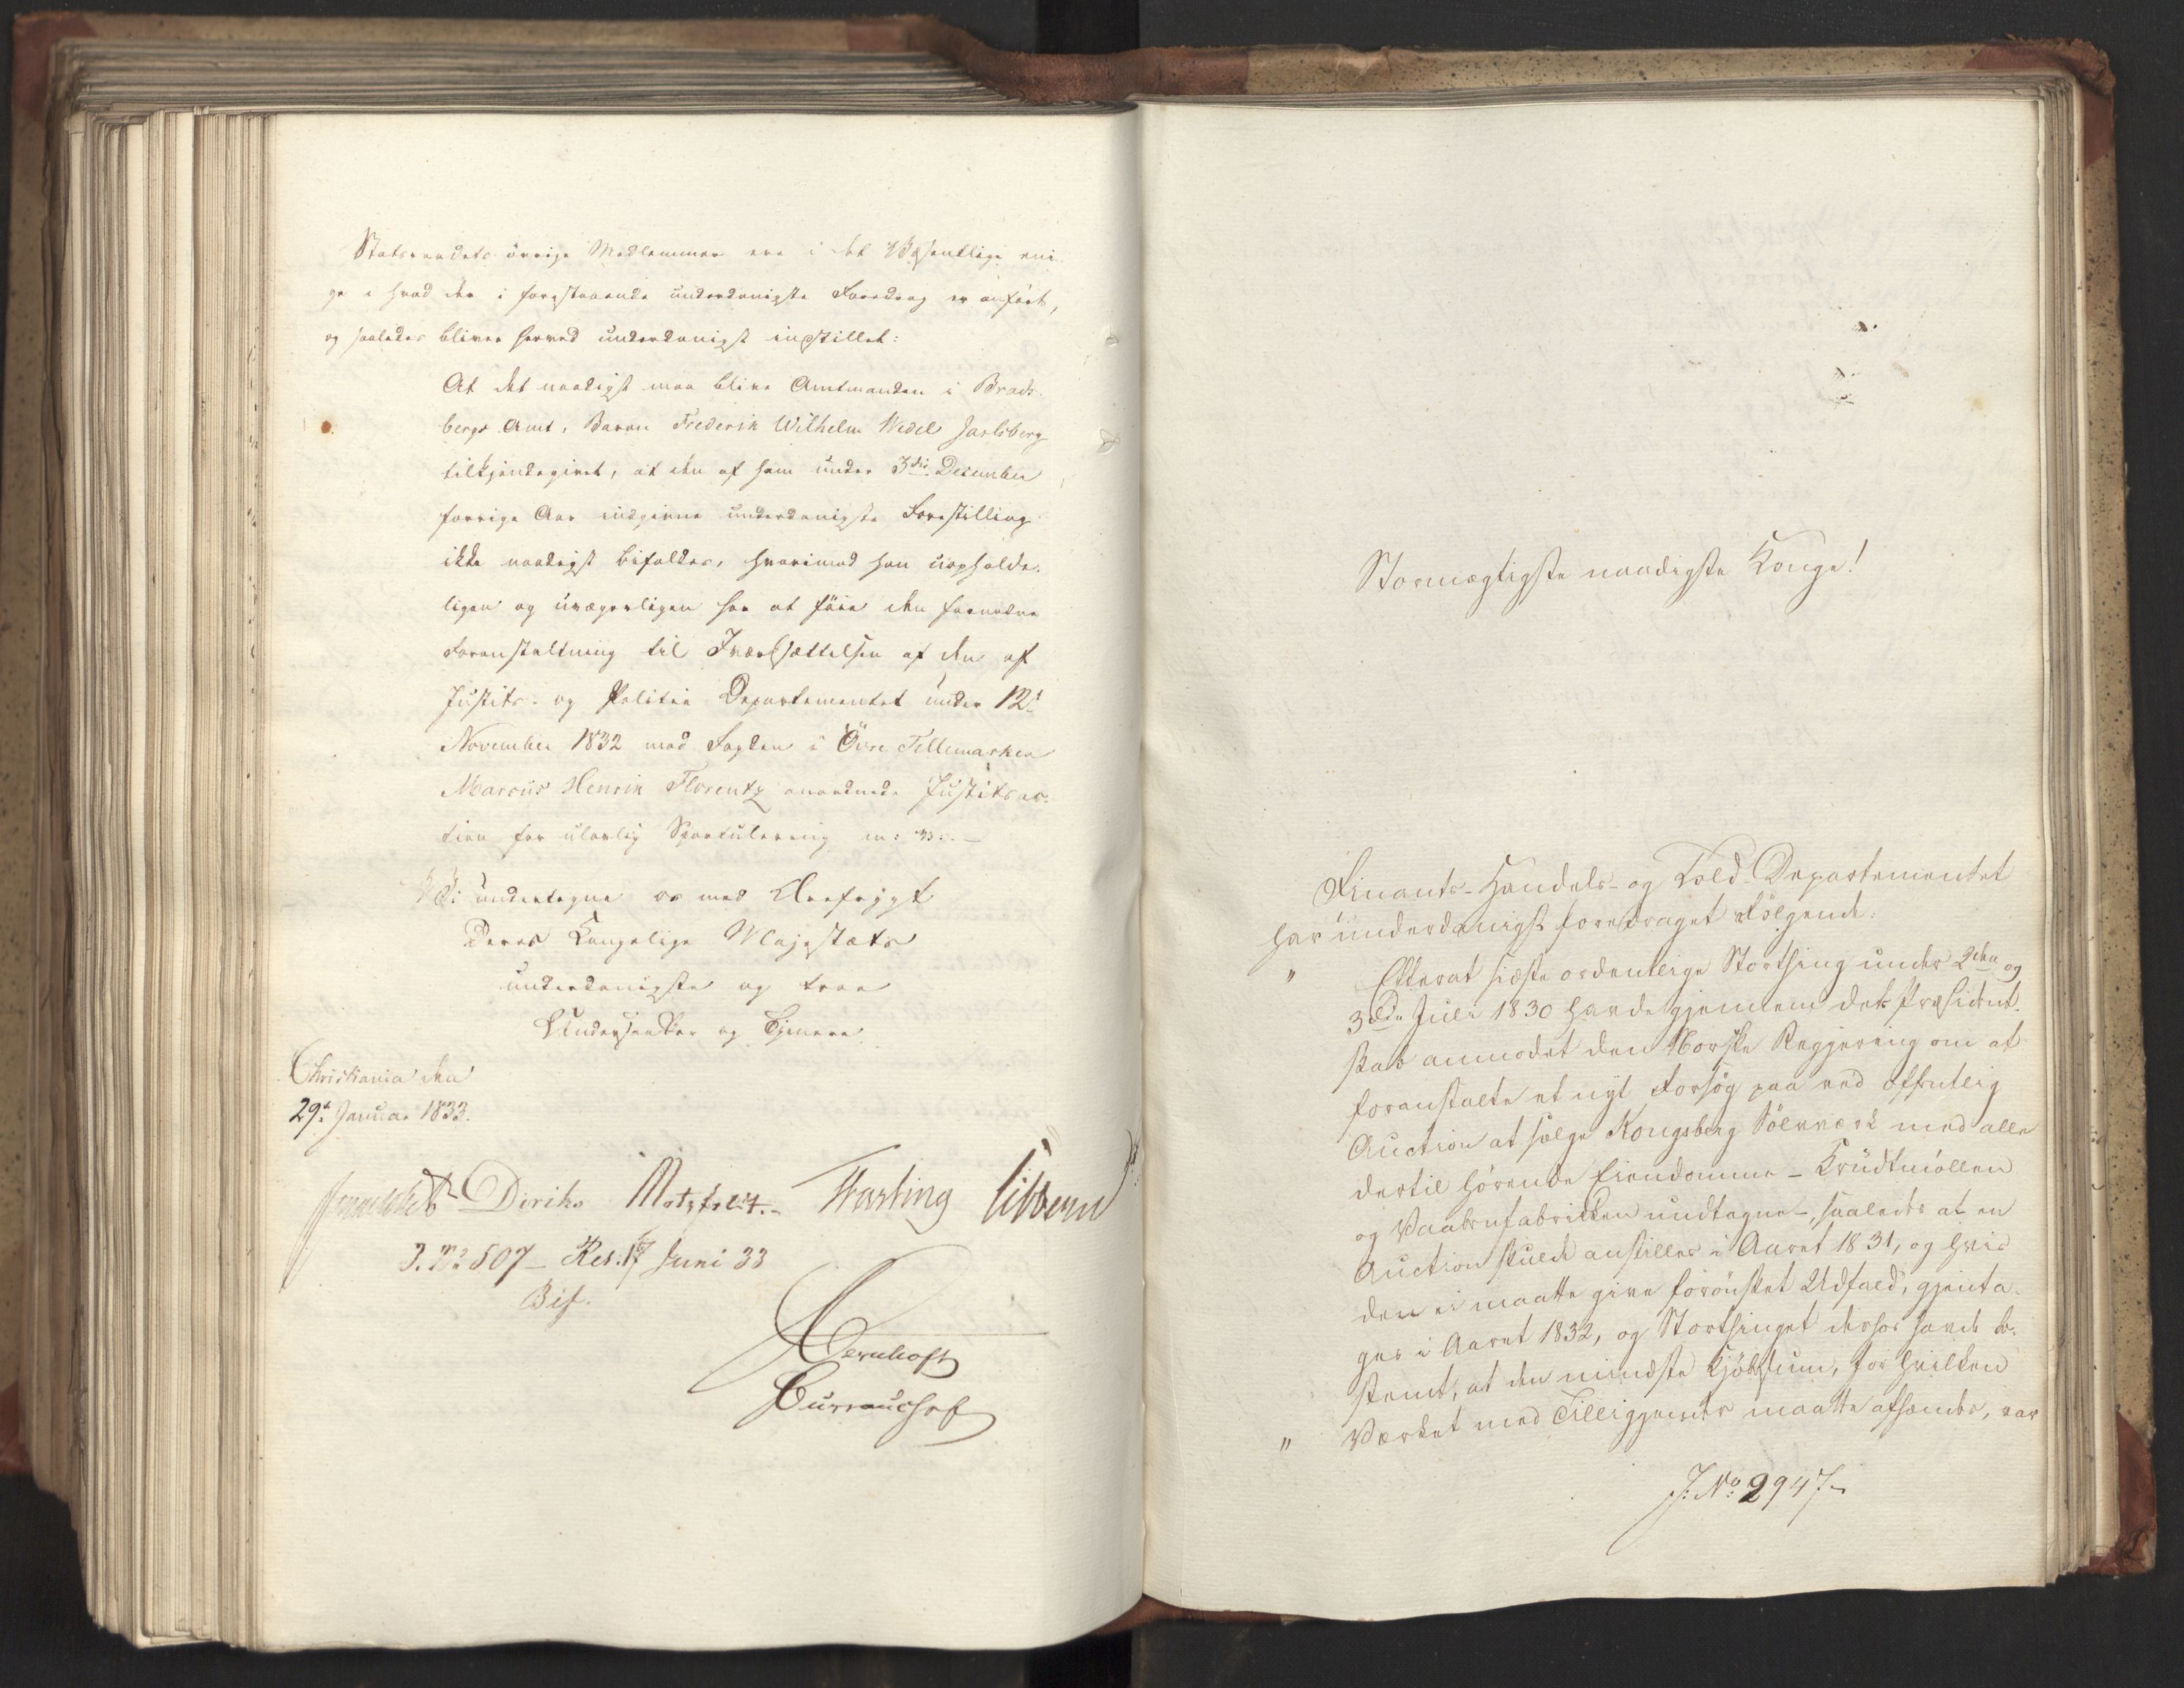 Statsraadets övrige Medlemmer ere i det Væsentlige eni-
ge i hvad der i forestaaende underdanigste Foredrag er anfört,
og saaledes bliver herved underdanigst indstillet:
At det naadigst maa blive Amtmanden i Brads-
bergs Amt, Baron Frederik Wilhelm Wedel Jarlsberg
tilkjendegivet, at den af ham under 3die December
forrige Aar indgivne underdanigste Forestilling
ikke naadigst bifaldes, hvorimod han uopholde-
ligen og uvægerligen har at föie den fornødne
Foranstaltning til Iværksættelsen af den af
Justits- og Politie Departementet under 12te
November 1832 mod Fogden i Övre Tellemarken
Marcus Henrik Florentz anordnede Justitsac-
tion for ulovlig Sportulering m: v:. —
Vi undertegne os med Ærefrygt
Deres Kongelige Majestæts
underdanigste og troe
Undersaatter og Tjenere.
Christiania den
29de Januar 1833.
Diriks Motzfeldt. Fasting Sibbern
J. No 507 — Res: 17 Juni 33
Bif.
Stormægtigste naadigste Konge!
Finants- Handels- og Told-Departementet
har underdanigst foredraget Fölgende:
" Efterat sidste ordentlige Storthing under 2den og
3die Juli 1830 havde gjennem dets Præsident-
skab anmodet den Norske Regjering om at
foranstalte et nyt Forsög paa ved offentlig
Auction at sælge Kongsberg Sölvværk med alle
dertil hörende Eiendomme – Krudtmöllen
og Vaabenfabrikken undtagne –, saaledes at en
Auction skulde anstilles i Aaret 1831, og hvis
den ei maatte give forönsket Udfald, gjenta-
ges i Aaret 1832, og Storthinget derhos havde be-
stemt, at den mindste Kjöbesum, for hvilken
" Værket med Tilliggender maatte afhændes, var
J: No: 2947-